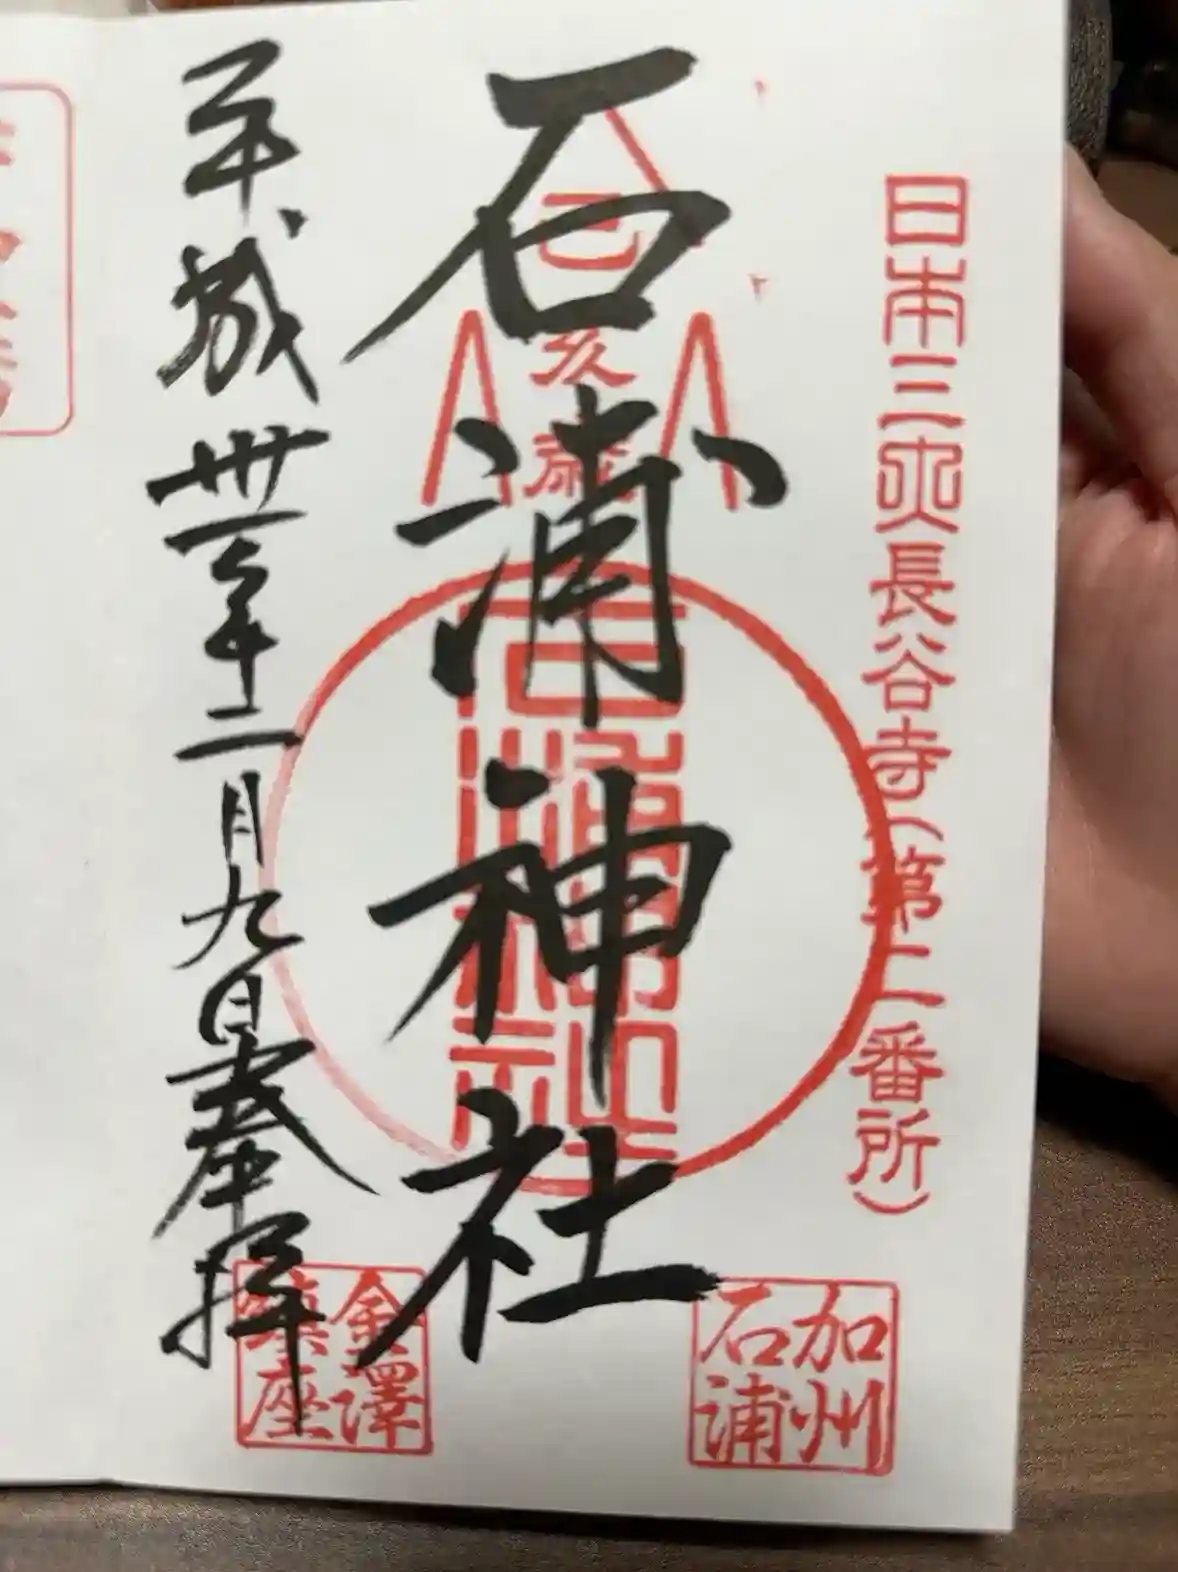 日本三大長谷寺(第二番所)
石浦神社
己
亥
歳
加州
石浦
平成卅一年二月九日奉拝
金澤
鎮座